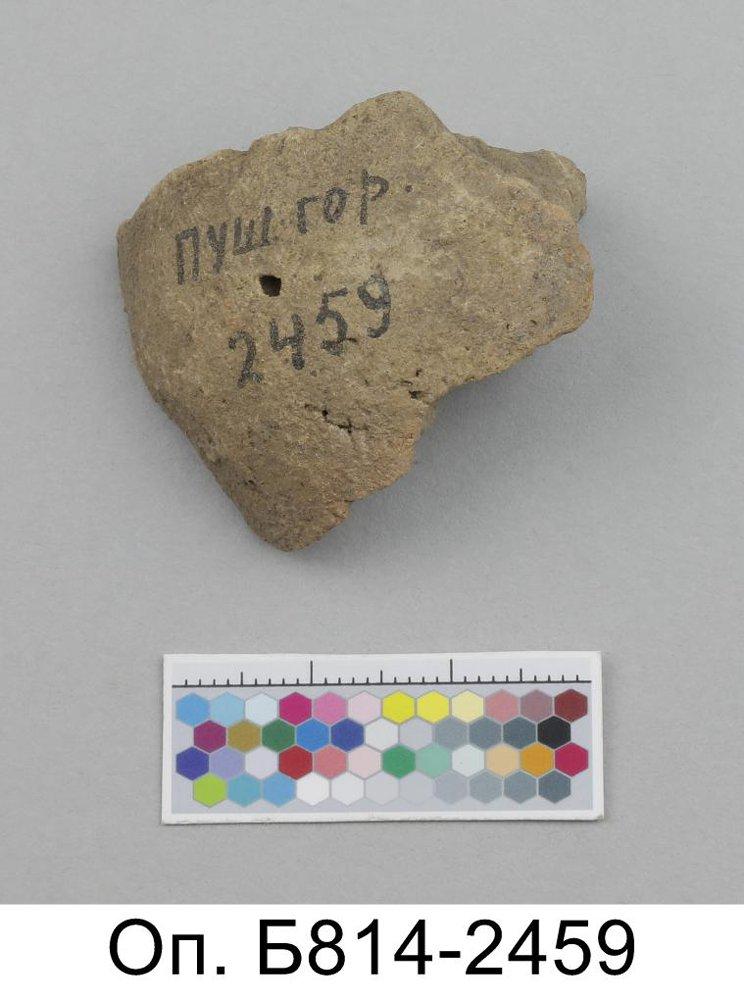 ПУШ. ГОР.
2459
Оп. Б814-2459